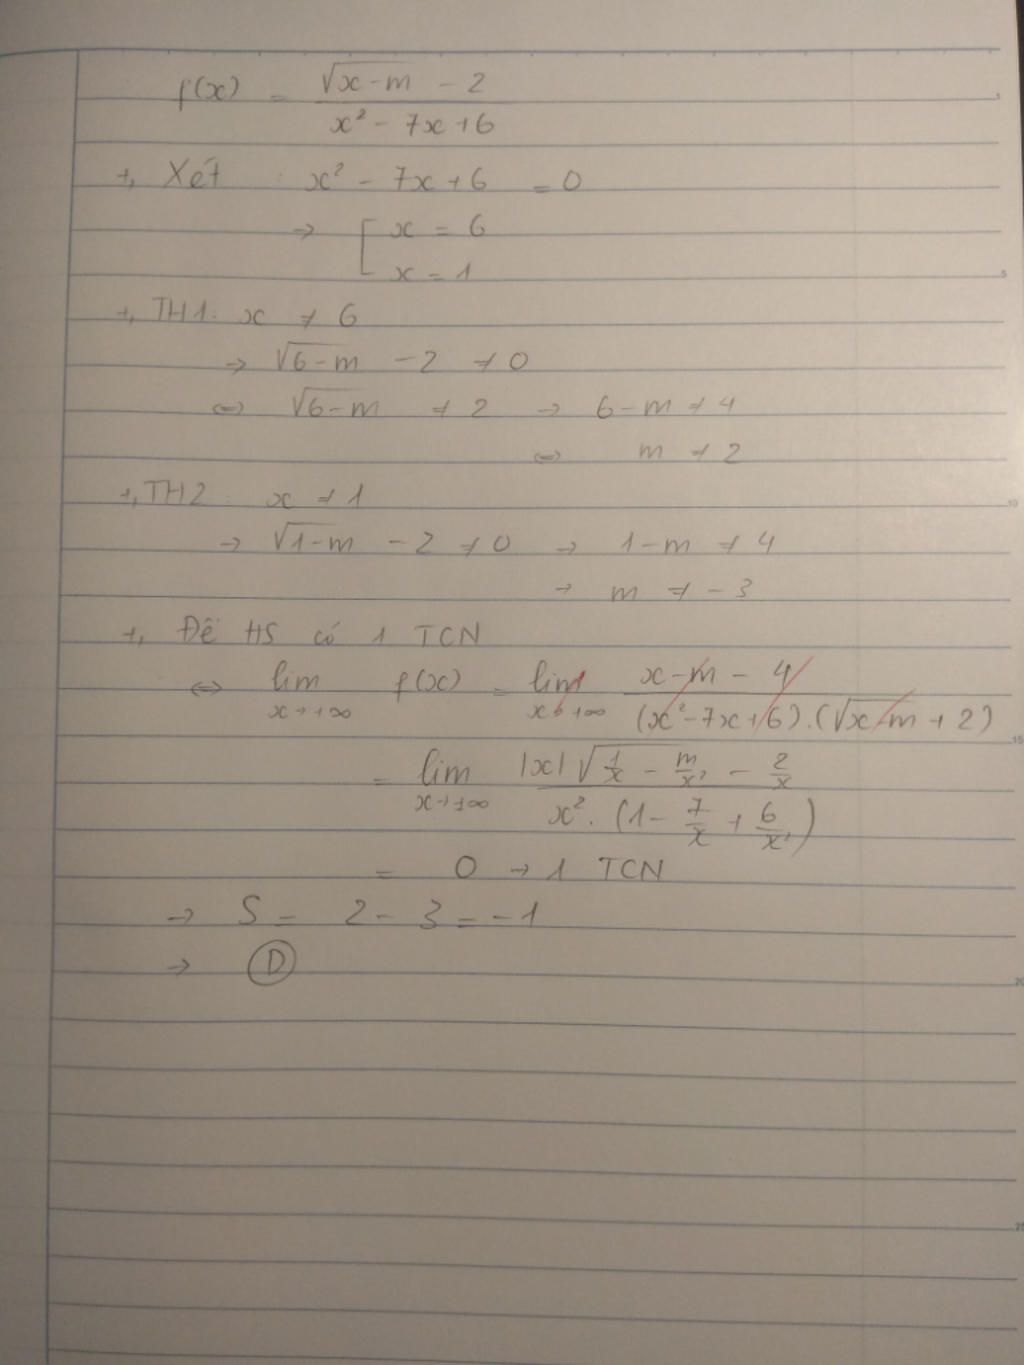 f(x) = (√(x-m) - 2)/(x² - 7x + 6)
+, Xét : x² - 7x + 6 = 0
→ [ x = 6
x = 1
+, TH1: x ≠ 6
→ √(6-m) - 2 ≠ 0
⇔ √(6-m) ≠ 2 → 6 - m ≠ 4
⇔ m ≠ 2
+, TH2: x ≠ 1
→ √(1-m) - 2 ≠ 0 → 1 - m ≠ 4
→ m ≠ -3
+, Để HS có 1 TCN
⇔ lim x→+∞ f(x) = lim x→+∞ (x - m - 4)/((x² - 7x + 6).(√(x-m) + 2))
= lim x→+∞ (|x|√(1/x - m/x²) - 2/x)/(x².(1 - 7/x + 6/x²))
= 0 → 1 TCN
→ S = 2 - 3 = -1
→ D